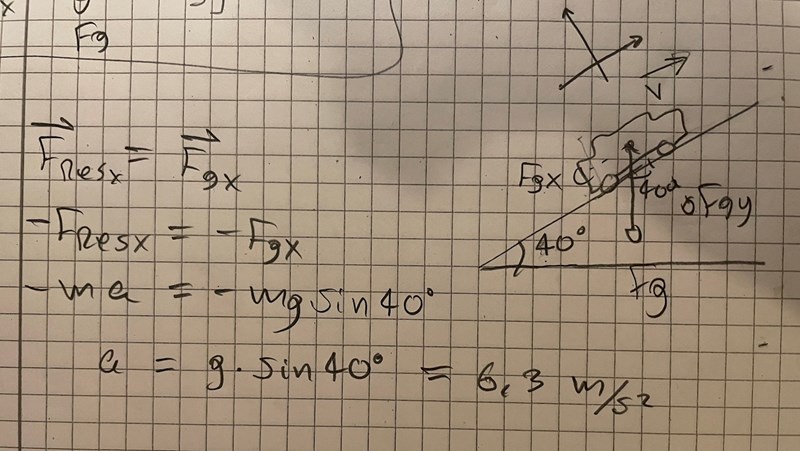 x
Fg
F⃗Resx = F⃗gx
-FResx = -Fgx
-ma = -mg sin 40°
a = g · sin 40° = 6,3 m/s²
V
Fgx
40°
Fgy
40°
Fg